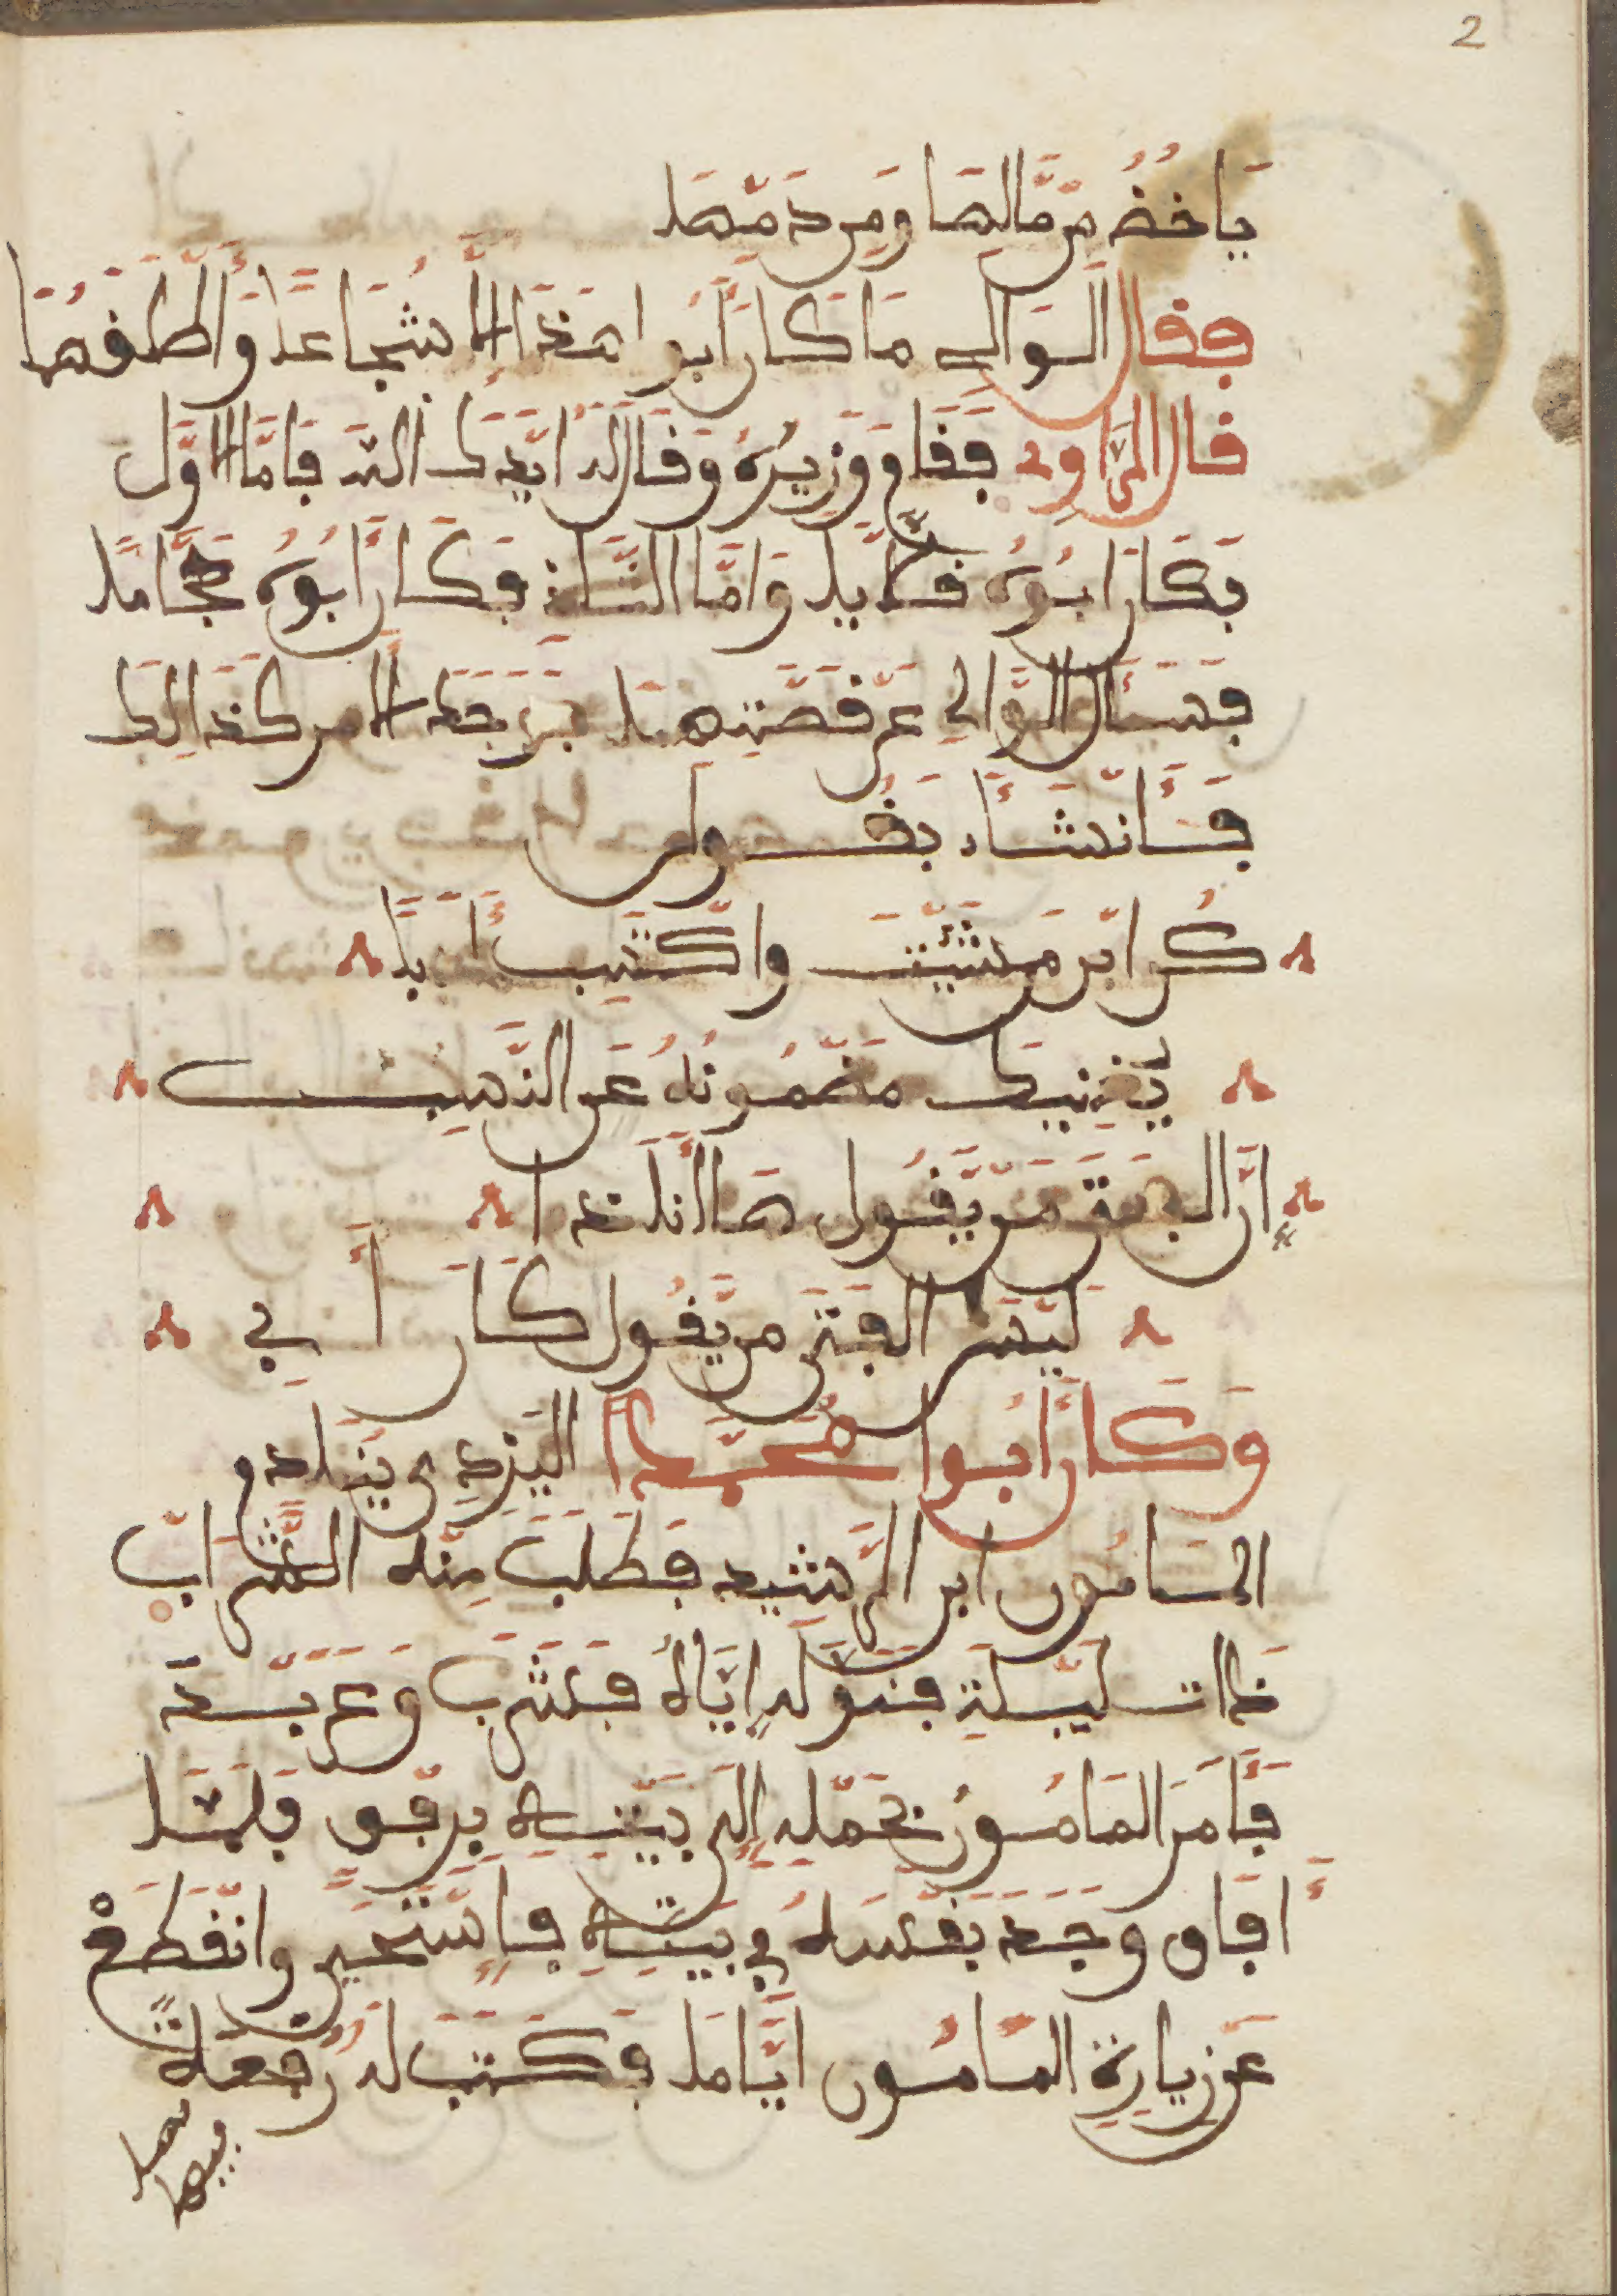 2
ياخذ من مالها ومن دمها
فقال الوالي ما كان ابوا هذا الا شجاعا وأطلقهما
قال الراوي فقام وزيره وقال له ايدك الله فاما الاول
فكان ابوه فوالا واما الثاني فكان أبوه حجاما
فسأل الوالي عن قصتهما فوجد الامر كذالك
فأنشاء يقول
كن ابن من شئت واكتسب أدبا
يغنيك مضمونه عن النسب
إن الفتى من يقول ها انا ذا
ليس الفتى من يقول كان أبي
وكان أبوا محمد اليزيدي ينادم
المامون ابن الرشيد فطلب منه الشراب
ذات ليلة فنوله اياه فشرب وعربد
فأمر المامون بحمله إلى بيته برفق فلما
أفاق وجد نفسه في بيته فاستحيى وانقطع
عن زيارة المامون اياما فكتب له رقعة
فيها